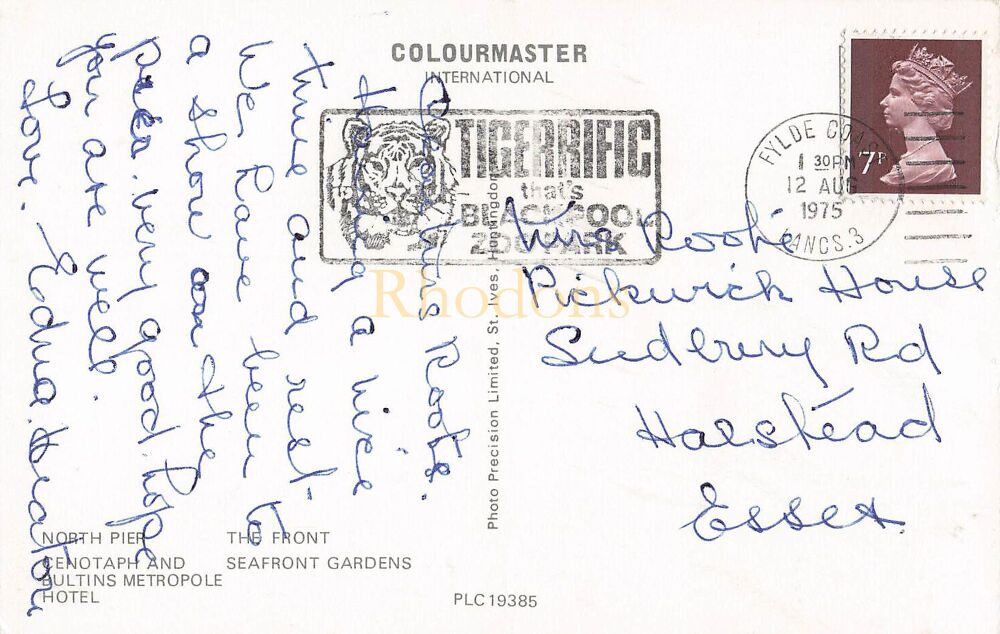 COLOURMASTER
INTERNATIONAL
TIGERRIFIC
that's
BLACKPOOL
ZOO PARK
FYLDE COAST
1 30PM
12 AUG
1975
LANCS.3
7P
Dear Mrs Rooke.
Having a nice
time and rest
We have been to
a show on the
pier. very good. hope
you are well.
Love. Edna
Mrs Rooke
Pickwick House
Sudbury Rd
Halstead
Essex
Rhodons
Photo Precision Limited, St. Ives, Huntingdon
NORTH PIER THE FRONT
CENOTAPH AND SEAFRONT GARDENS
BULTINS METROPOLE
HOTEL
PLC19385